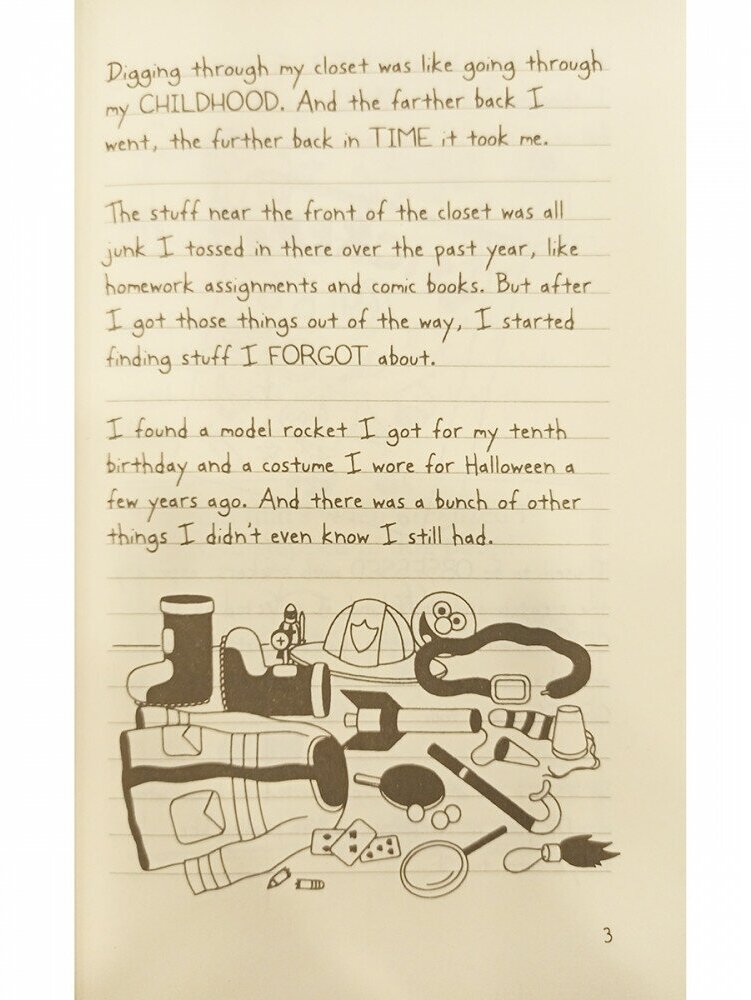 Digging through my closet was like going through
my CHILDHOOD. And the farther back I
went, the further back in TIME it took me.
The stuff near the front of the closet was all
junk I tossed in there over the past year, like
homework assignments and comic books. But after
I got those things out of the way, I started
finding stuff I FORGOT about.
I found a model rocket I got for my tenth
birthday and a costume I wore for Halloween a
few years ago. And there was a bunch of other
things I didn't even know I still had.
3